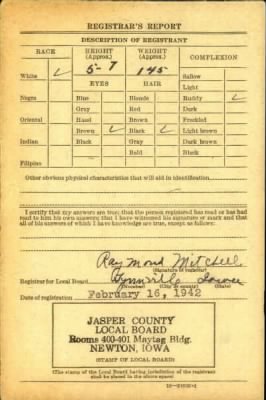 REGISTRAR'S REPORT
DESCRIPTION OF REGISTRANT
RACE HEIGHT (Approx.) WEIGHT (Approx.) COMPLEXION
5-7 145
White ✓ Sallow
EYES HAIR Light
Negro Blue Blonde Ruddy ✓
Gray Red Dark
Oriental Hazel Brown Freckled
Brown ✓ Black ✓ Light brown
Indian Black Gray Dark brown
Bald Black
Filipino
Other obvious physical characteristics that will aid in identification
I certify that my answers are true; that the person registered has read or has had
read to him his own answers; that I have witnessed his signature or mark and that
all of his answers of which I have knowledge are true, except as follows:
Raymond Mitchell
(Signature of registrar)
Registrar for Local Board Lynnville Iowa
(Number) (City or county) (State)
Date of registration February 16, 1942
JASPER COUNTY
LOCAL BOARD
Rooms 400-401 Maytag Bldg.
NEWTON, IOWA
(STAMP OF LOCAL BOARD)
(The stamp of the Local Board having jurisdiction of the registrant
shall be placed in the above space)